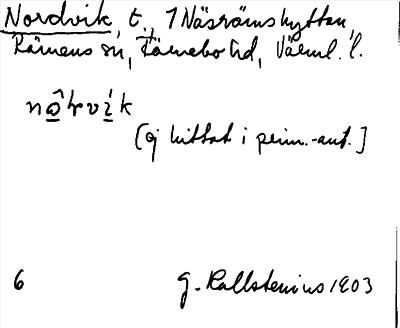 Nordvik, t., 1 Näsrämshyttan,
Rämens sn, Färnebo hd, Värml. l.
nô̱rvi̱k
(ej hittat i prim.-ant.]
6 G. Kallstenius 1903